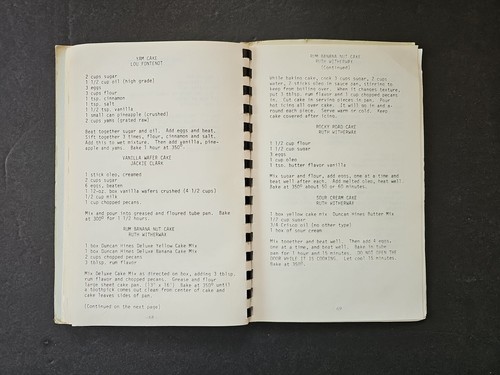 YAM CAKE
LOU FONTENOT
2 cups sugar
1 1/2 cup oil (high grade)
3 eggs
3 cups flour
1 tsp. cinnamon
1 tsp. salt
1 1/2 tsp. vanilla
1 small can pineapple (crushed)
2 cups yams (grated raw)
Beat together sugar and oil. Add eggs and beat.
Sift together 3 times, flour, cinnamon and salt.
Add this to wet mixture. Then add vanilla, pine-
apple and yams. Bake 1 hour at 350°.
VANILLA WAFER CAKE
JACKIE CLARK
1 stick oleo, creamed
2 cups sugar
6 eggs, beaten
1 12-oz. box vanilla wafers crushed (4 1/2 cups)
1/2 cup milk
1 cup chopped pecans
Mix and pour into greased and floured tube pan. Bake
at 300° for 1 1/2 hours.
RUM BANANA NUT CAKE
RUTH WITHERWAX
1 box Duncan Hines Deluxe Yellow Cake Mix
1 box Duncan Hines Deluxe Banana Cake Mix
2 cups chopped pecans
3 tblsp. rum flavor
Mix Deluxe Cake Mix as directed on box, adding 3 tblsp.
rum flavor and chopped pecans. Grease and flour
large sheet cake pan. Bake at 350° until
a toothpick comes out clean from center of cake and
cake leaves sides of pan.
(Continued on the next page)
RUM BANANA NUT CAKE
RUTH WITHERWAX
(Continued)
While baking cake, cook 3 cups sugar, 2 cups
water, 2 sticks oleo in sauce pan, stirring to
keep from boiling over. When it changes texture,
put 3 tblsp. rum flavor and 1 cup chopped pecans
in. Cut cake in serving pieces in pan. Pour
hot icing all over cake. It will go in and a-
round each piece. Serve warm or cold. Keep
cake covered after icing.
ROCKY ROAD CAKE
RUTH WITHERWAX
1 1/2 cup flour
1 1/2 cup sugar
3 eggs
1 cup oleo
1 tsp. butter flavor vanilla
Mix sugar and flour, add eggs, one at a time and
beat well after each. Add melted oleo, beat well.
Bake at 350° about 50 or 60 minutes.
SOUR CREAM CAKE
RUTH WITHERWAX
1 box yellow cake mix Duncan Hines Butter Mix
1/2 cup sugar
3/4 Crisco oil (no other type)
1 box of sour cream
Mix together and beat well. Then add 4 eggs,
one at a time, and beat well. Bake in tube
pan for 1 hour and 15 minutes. DO NOT OPEN THE
DOOR WHILE IT IS COOKING. Let cool 15 minutes.
Bake at 350°.